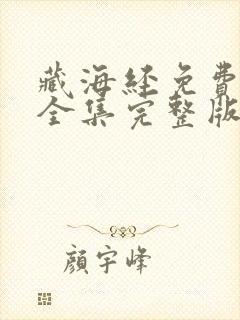 藏海经免費
全集完整版
顔宇峰